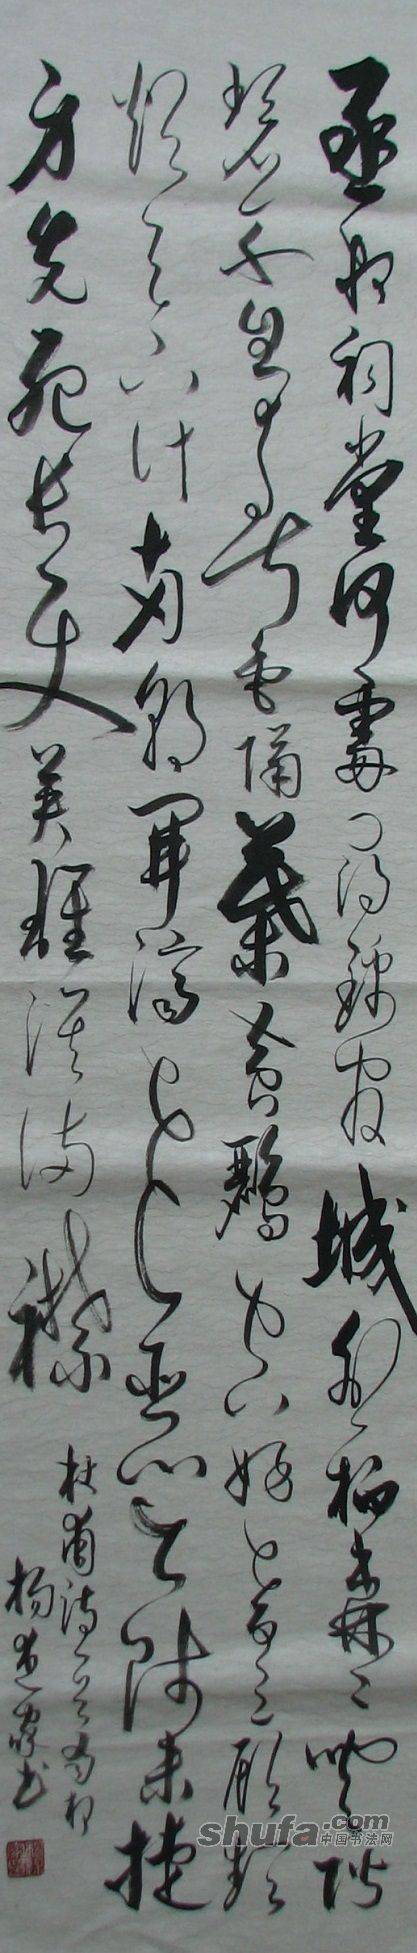 丞相祠堂何處尋錦官城外柏森森映階
碧草自春色隔葉黃鸝空好音三顧頻
煩天下計兩朝開濟老臣心出師未捷
身先死長使英雄淚滿襟
杜甫詩蜀相
楊書
shufa.com
中国书法网